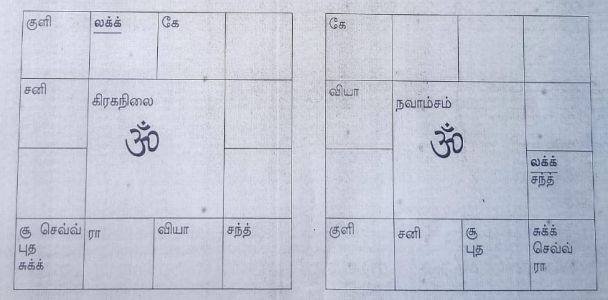 குளி லக்க் கே
சனி
கிரகநிலை
ॐ
சூ செவ்வ் ரா வியா சந்த்
புத
சுக்க்
கே
வியா
நவாம்சம்
ॐ
லக்க்
சந்த்
குளி சனி சூ சுக்க்
புத செவ்வ்
ரா